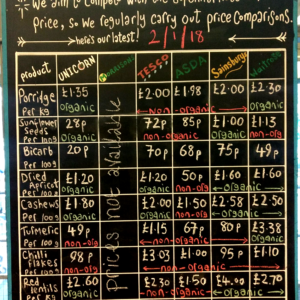 We aim to compete with the
Price, so we regularly carry out price comparisons.
here's our latest! 2/1/18
Product UNICORN TESCO ASDA Sainsburys Waitrose
Porridge £1.35 £2.00 £1.98 £2.00 £2.30
Per kg organic non-organic organic
Sunflower Seeds 28p 72p 85p £1.00 £1.13
Per 100g organic non-organic
Bicarb 20p 70p 68p 75p 49p
Per 100g
Dried Apricot £1.20 £1.20 50p £1.60 £1.60
Per 100g organic organic non-org organic
Cashews £1.80 £2.00 £1.50 £2.58 £2.50
Per 100g organic organic non-org organic
Tumeric 49p £1.15 67p 80p £3.38
Per 100g non-org non-org organic
Chilli flakes 98p £3.03 £1.00 95p £1.10
Per 100g non-org non-organic
Red lentils £2.60 £2.30 £1.50 £4.00 £2.70
Per kg organic non-organic organic
Prices not available